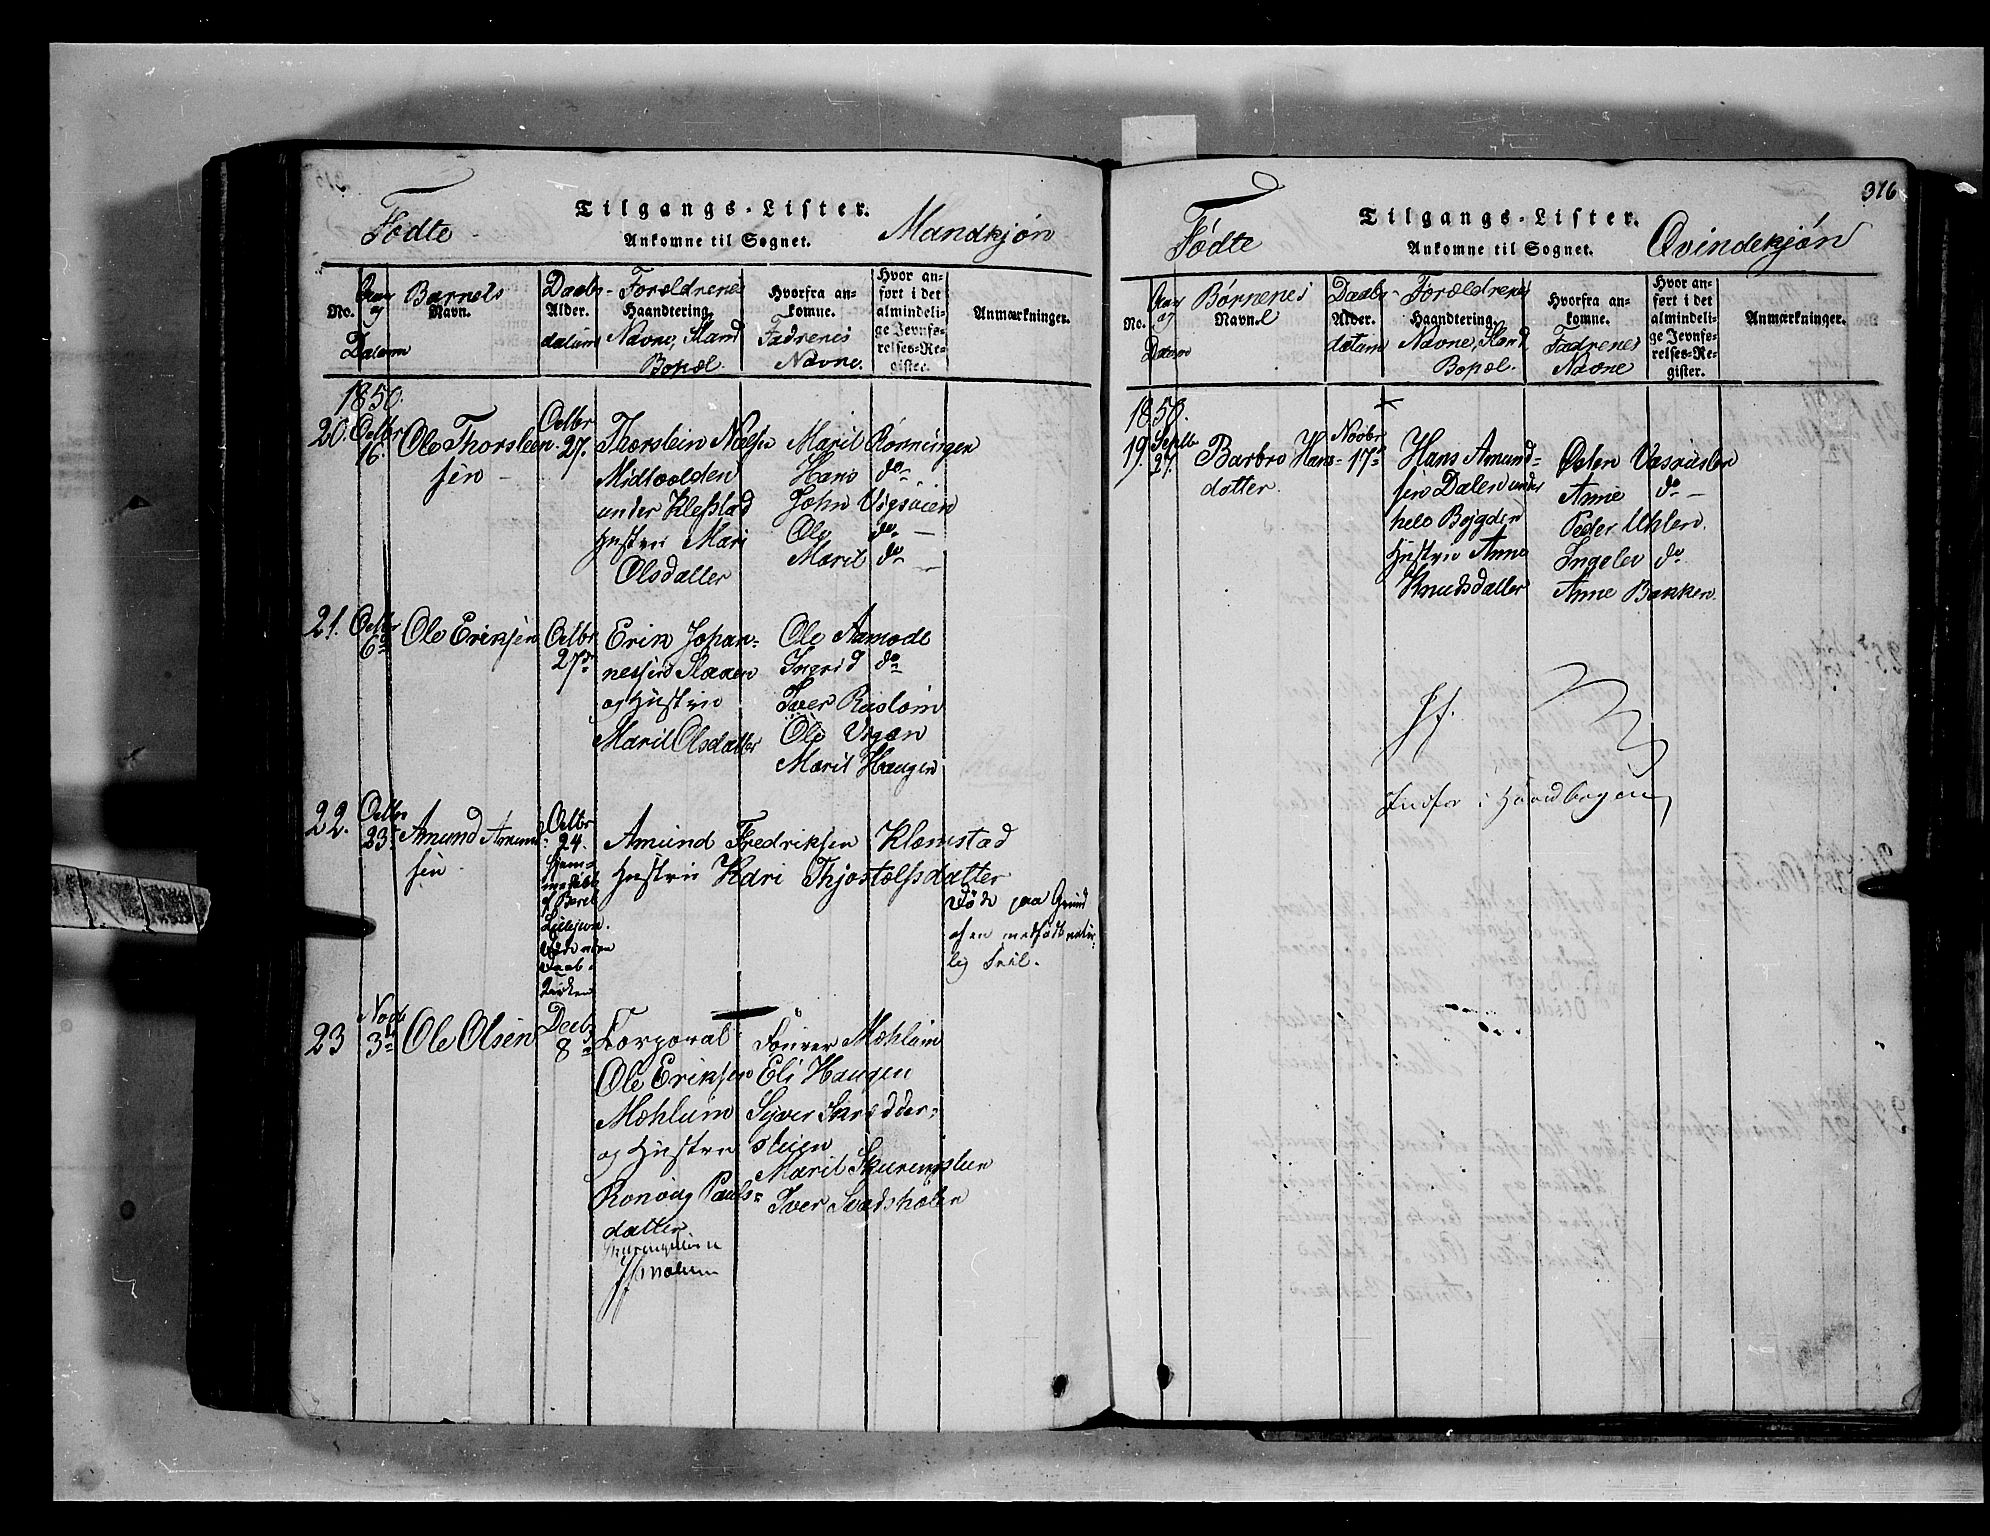 Fødte
Tilgangs-Lister.
Ankomne til Sognet.
Mandkjøn
No.
Aar og Datum
Barnets
Navn.
Daabs-
Alder.
datum
Forældrenes
Haandtering.
Navne, Stand
Bopæl.
Hvorfra an-
komne.
Fadrenes
Navne.
Hvor an-
ført i det
almindeli-
ge Jevnfø-
relses-Re-
gister.
Anmærkninger.
1850.
20. Octbr 16. Ole Thorsteen-
sen
Octbr
27.
Thorstein Nielsen
Midtvolden
under Klefstad
Hustru Mari
Olsdatter
Marit Rønningen
Hans do
John Vigsveien
Ole do
Marit do
21. Octbr 6 Ole Eriksen
Octbr
27
Erik Johan-
nessen Slaaen
og Hustru
Marit Olsdatter
Ole Aamodt
Ingrid do
Iver Rusløin
Ole
Marit Haugen
22. Octbr 23 Amund Amund
sen
Octbr
24.
Amund Fredriksen Klomstad
Hustru Kari Thjostolfsdatter
Døde paa Grund
af en medfødt
lig Feil.
23 Novb 3 Ole Olsen
Decb
8
Corporal
Ole Eriksen
Mæhlum
og Hustru
Ronnoug Pauls-
datter
Fourer Mæhlum
Eli Haugen
Syver Skrædder-
steien
Marit Skurengslien
Iver
376
Fødte
Tilgangs-Lister.
Ankomne til Sognet.
Qvindekjøn
No.
Aar og Datum
Børnenes
Navne
Daabs-
Alder.
datum
Forældrenes
Haandtering.
Navne, Stand
Bopæl.
Hvorfra an-
komne.
Fadrenes
Navne
Hvor an-
ført i det
almindeli-
ge Jevnfø-
relses-Re-
gister.
Anmærkninger.
1850.
19. Septb 27. Barbro Hans-
datter.
Novbr
17
Hans Amund-
sen Dalen under
Bygden
Hustru Anne
Knudsdatter
Østen
Anne do
Peder Uhlen.
Ingelev do
Anne Bakken.